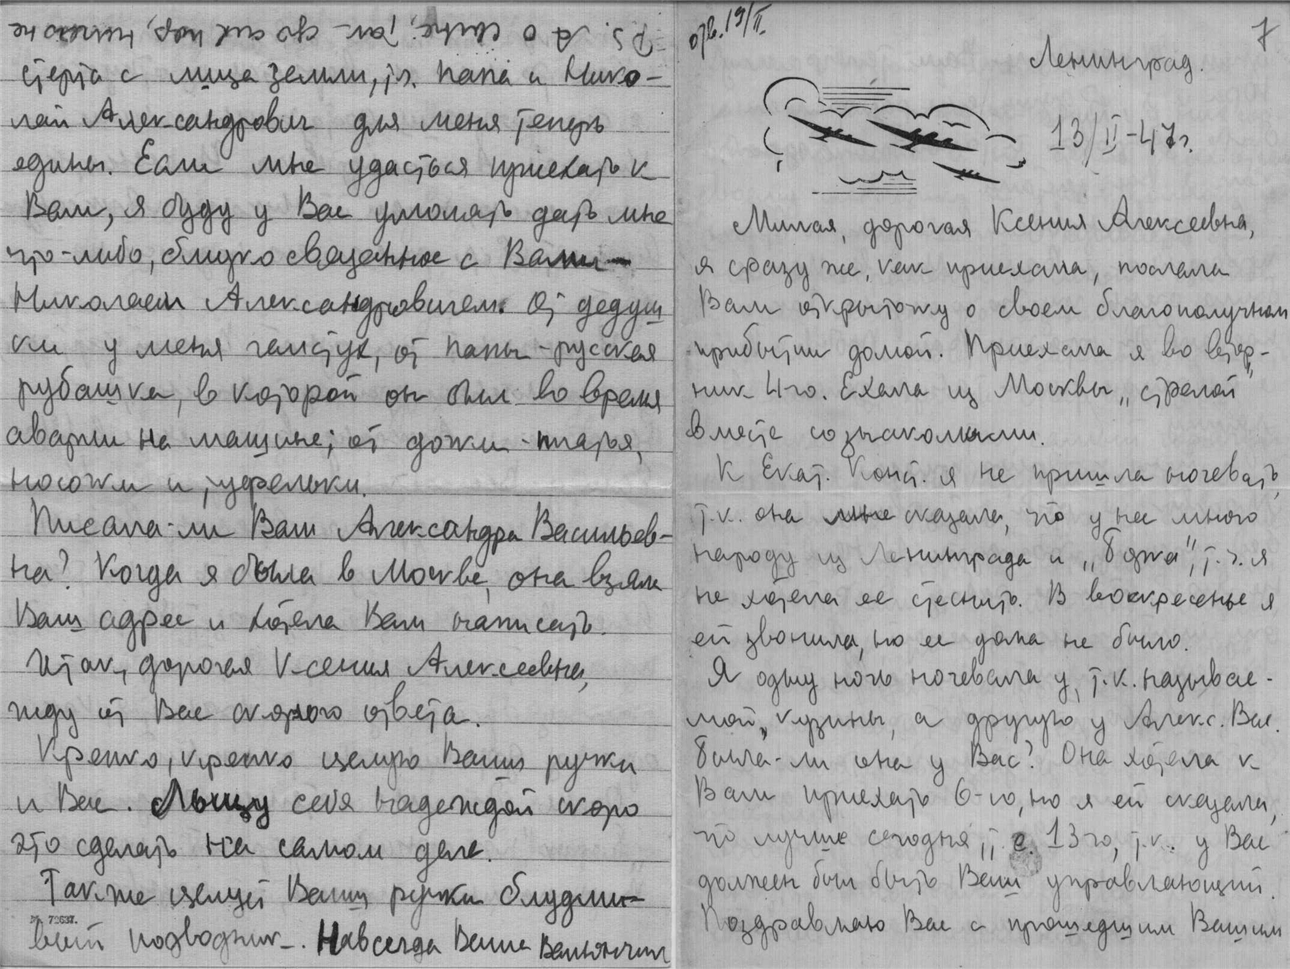 отв. 19/II
7
Ленинград.
13/II-47г.
Милая, дорогая Ксения Алексеевна,
я сразу же, как приехала, послала
Вам открытку о своем благополучном
прибытии домой. Приехала я во втор-
ник 4го. Ехала из Москвы „стрелой"
вместе со знакомыми.
К Екат. Конст. я не пришла ночевать,
т.к. она мне сказала, что у нее много
народу из Ленинграда и т.ч. я
не хотела ее стеснить. В воскресенье я
ей звонила, но ее дома не было.
Я одну ночь ночевала у, т.к. называе-
мой, кузины, а другую у Алекс. Вас.
Была-ли она у Вас? Она хотела к
Вам приехать 6-го, но я ей сказала,
что лучше сегодня, т.е. 13го, т.к. у Вас
должен был быть Ваш управляющий.
Поздравляю Вас с прошедшим Вашим
P.S. А о сыне, так до сих пор, ничего не
стерта с лица земли, т.ч. папа и Нико-
лай Александрович для меня теперь
едины. Если мне удасться приехать к
Вам, я буду у Вас умолять дать мне
что-либо, близко связанное с Вашим
Николаем Александровичем. От дедуш
ки у меня галстук, от папы - русская
рубашка, в которой он был во время
аварии на машине; от дочки - платья,
носочки и туфельки.
Писала-ли Вам Александра Васильев-
на? Когда я была в Москве, она взяла
Ваш адрес и хотела Вам написать.
Итак, дорогая Ксения Алексеевна,
жду от Вас скорого ответа.
Крепко, крепко целую Ваши ручки
и Вас. Льщу себя надеждой скоро
это сделать на самом деле.
Также целует Ваши ручки блудли-
вый подводник. Навсегда Ваша
№ 72637.